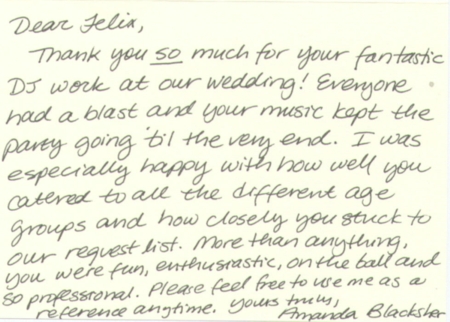 Dear Felix,
Thank you so much for your fantastic
DJ work at our wedding! Everyone
had a blast and your music kept the
party going 'til the very end. I was
especially happy with how well you
catered to all the different age
groups and how closely you stuck to
our request list. More than anything,
you were fun, enthusiastic, on the ball and
so professional. Please feel free to use me as a
reference anytime. yours truly,
Amanda